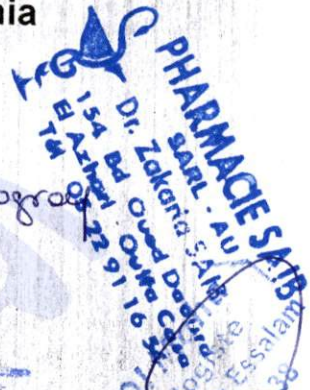 nia
PHARMACIE SAIB
SARL - AU
Dr. Zakaria SAIB
154 Bd Oued Daoura
El Azhari Oulfa Casa
Tél 05 22 91 16
Essalam
38